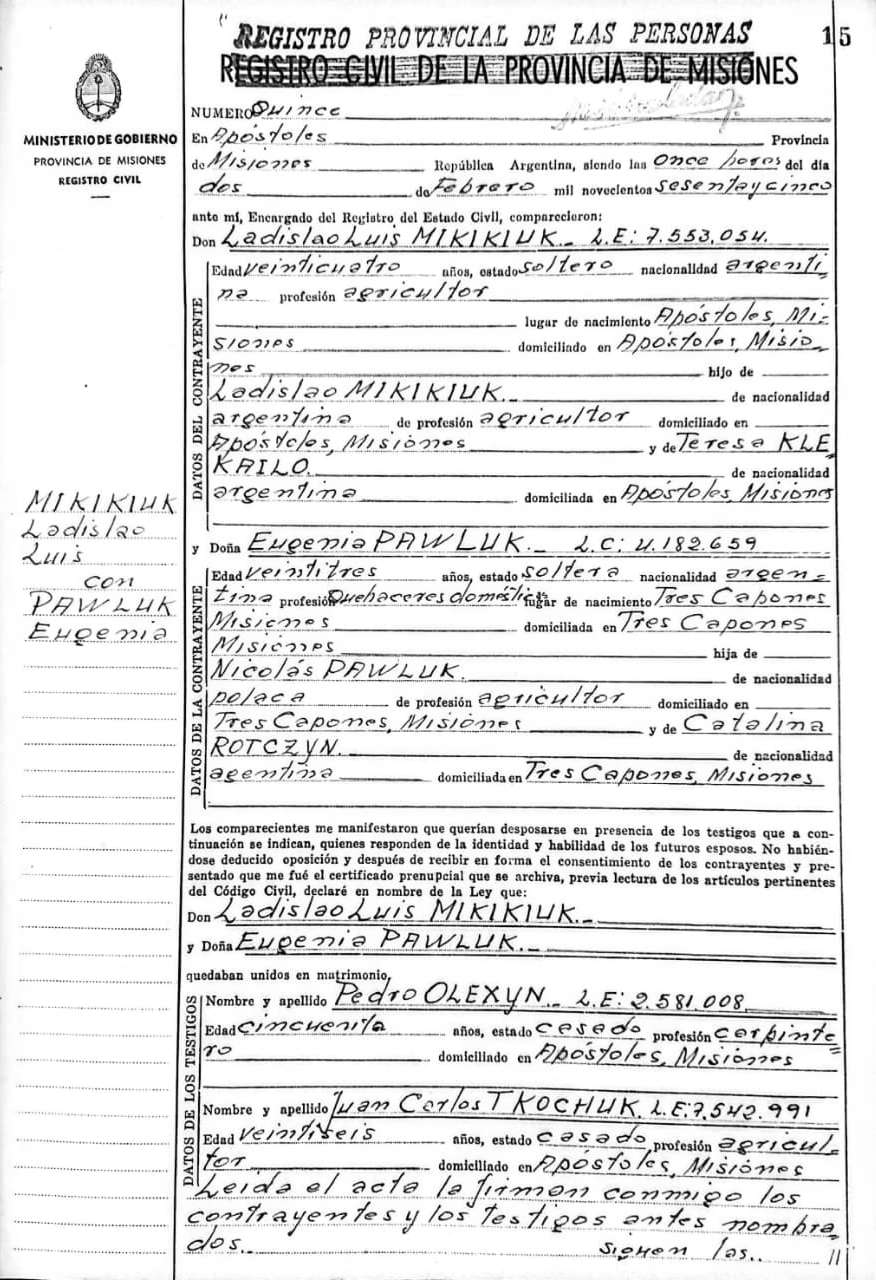 REGISTRO PROVINCIAL DE LAS PERSONAS
15
REGISTRO CIVIL DE LA PROVINCIA DE MISIONES
MINISTERIO DE GOBIERNO
PROVINCIA DE MISIONES
REGISTRO CIVIL
NUMERO Quince
En Apóstoles Provincia
de Misiones República Argentina, siendo las Once horas del día
dos de Febrero mil novecientos sesentaycinco
ante mí, Encargado del Registro del Estado Civil, comparecieron:
Don Ladislao Luis MIKIKIUK._ L.E: 7.553.054.
DATOS DEL CONTRAYENTE
Edad veinticuatro años, estado soltero nacionalidad argenti-
na profesión agricultor
lugar de nacimiento Apóstoles, Mi-
siones domiciliado en Apóstoles, Misio-
nes hijo de
Ladislao MIKIKIUK. de nacionalidad
argentina de profesión agricultor domiciliado en
Apóstoles, Misiones y de Teresa KLE
KAILO. de nacionalidad
argentina domiciliada en Apóstoles, Misiones
MIKIKIUK
Ladislao
Luis
con
PAWLUK
Eugenia
y Doña Eugenia PAWLUK._ L.C: 4.182.659
DATOS DE LA CONTRAYENTE
Edad veintitres años, estado soltera nacionalidad argen-
tina profesión Quehaceres domésticos lugar de nacimiento Tres Capones
Misiones domiciliada en Tres Capones
Misiones hija de
Nicolás PAWLUK. de nacionalidad
polaca de profesión agricultor domiciliado en
Tres Capones, Misiones y de Catalina
ROTCZYN. de nacionalidad
agentina domiciliada en Tres Capones, Misiones
Los comparecientes me manifestaron que querían desposarse en presencia de los testigos que a con-
tinuación se indican, quienes responden de la identidad y habilidad de los futuros esposos. No habién-
dose deducido oposición y después de recibir en forma el consentimiento de los contrayentes y pre-
sentado que me fué el certificado prenupcial que se archiva, previa lectura de los artículos pertinentes
del Código Civil, declaré en nombre de la Ley que:
Don Ladislao Luis MIKIKIUK._
y Doña Eugenia PAWLUK._
quedaban unidos en matrimonio,
DATOS DE LOS TESTIGOS
Nombre y apellido Pedro OLEXYN._ L.E: 2.581.008
Edad cincuenta años, estado casado profesión carpinte
ro domiciliado en Apóstoles, Misiones
Nombre y apellido Juan Carlos TKOCHUK. L.E: 7.542.991
Edad veintiseis años, estado casado profesión agricul-
tor domiciliado en Apóstoles, Misiones
Leida el acta la firman conmigo los
contrayentes y los testigos antes nombra
dos. siguen las.. //